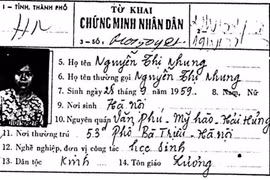 1 - TỈNH, THÀNH PHỐ
HN
TỪ KHAI
CHỨNG MINH NHÂN DÂN
3 - SỐ:
5. Họ tên Nguyễn Thị Nhung
6. Họ tên thường gọi Nguyễn Thị Nhung
7. Sinh ngày 28 tháng 9 năm 1959. 8. Nam, Nữ
9. Nơi sinh Hà nội
10. Nguyên quán Văn Phú - Mỹ hào - Hải Hưng
11. Nơi thường trú 53 Phố Bà Triệu - Hà nội
12. Nghề nghiệp, đơn vị công tác học sinh
13. Dân tộc Kinh 14. Tôn giáo